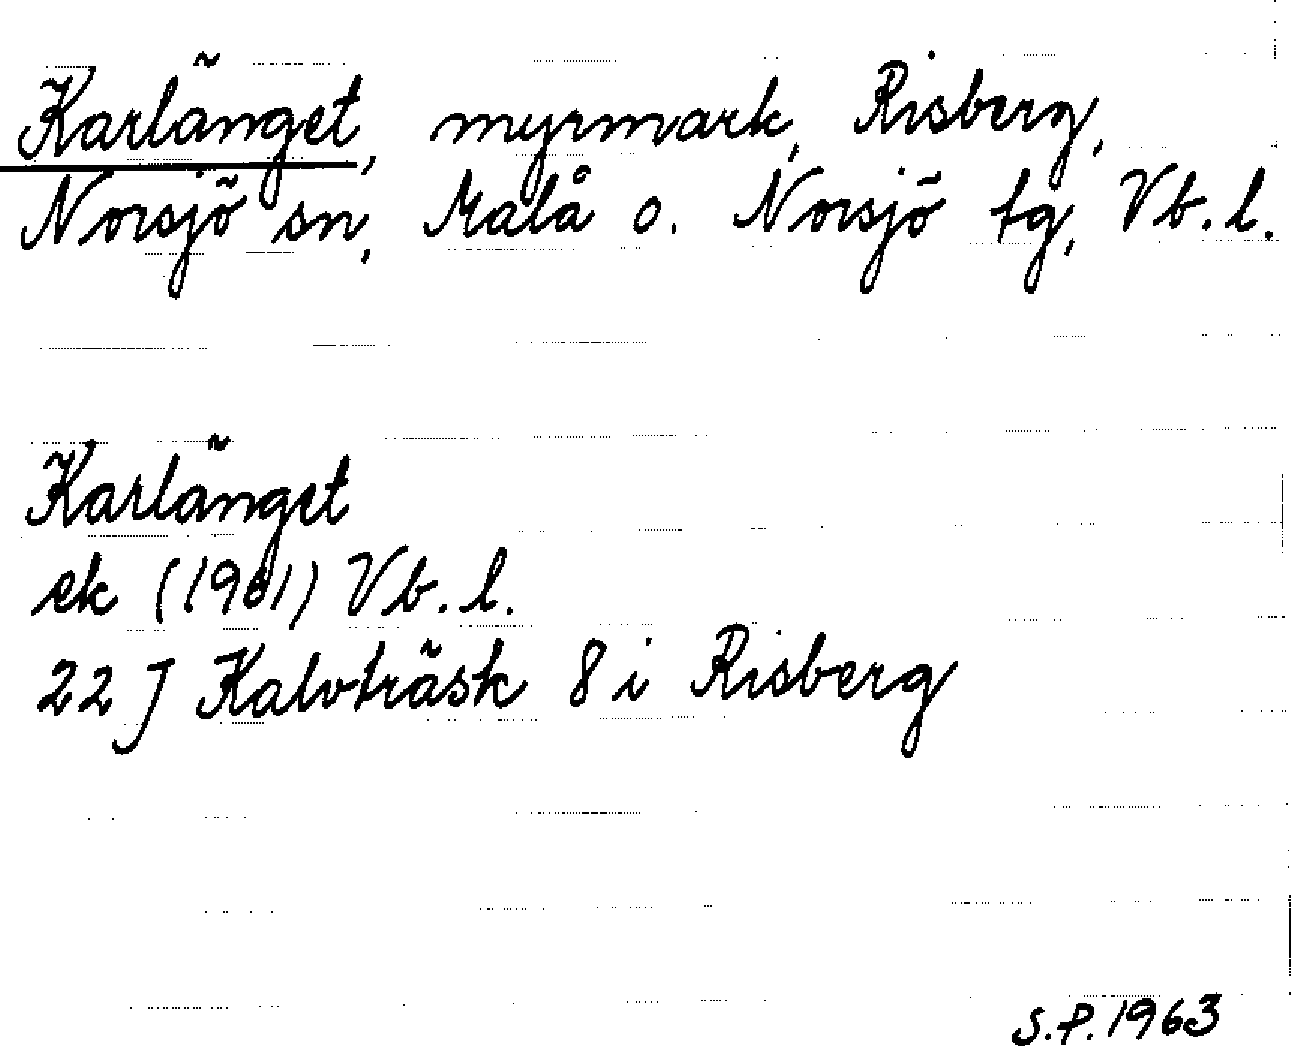 Karlänget, myrmark, Risberg,
Norsjö sn, Malå o. Norsjö tg, Vb. l.
Karlänget
ek (1961) Vb. l.
22 J Kalvträsk 8 i Risberg
S.P. 1963